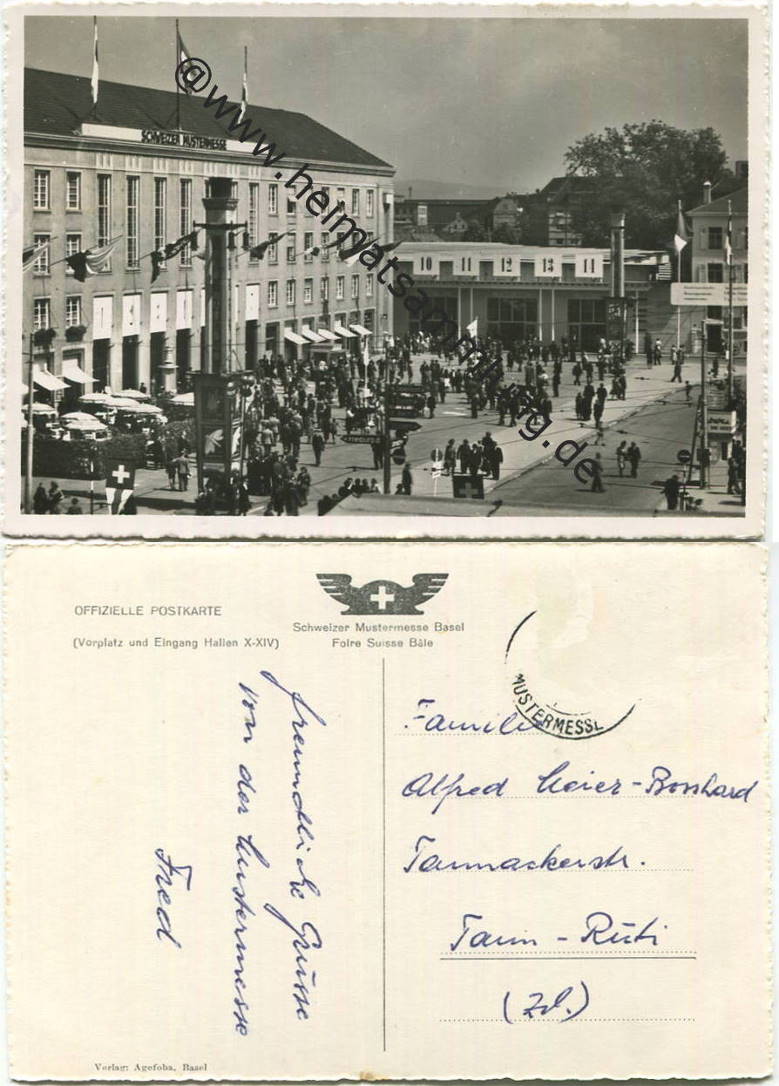 SCHWEIZER MUSTERMESSE
10 11 12 13 14
@www.heimatsammlung.de
OFFIZIELLE POSTKARTE
(Vorplatz und Eingang Hallen X-XIV)
Schweizer Mustermesse Basel
Foire Suisse Bâle
MUSTERMESSE
freundliche Grüsse
von der Mustermesse
Fred
Familie
Alfred Meier-Bosshard
Tannackerstr.
Tann-Rüti
(Zch.)
Verlag: Agefoba, Basel